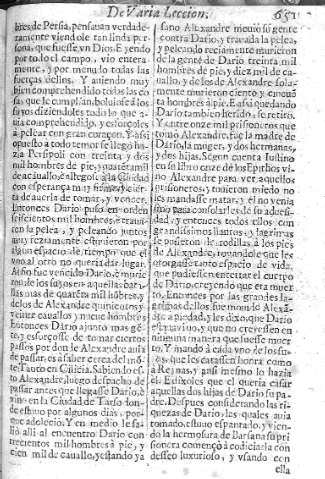 De Varia Leccion.
651
bres de Persia, pensauan verdade-
ramente viendole tan linda per-
sona, que fuesse vn Dios. E yendo
por todo el campo, vio entera-
mente, y por menudo todas las
fuerças dellos. Y auiendo muy
bien comprehendido todas las co-
sas que le cumplian, boluiose a los
suyos diziendoles todo lo que a-
uia comprehendido, y esforçoles
a pelear con gran coraçon. Y assi
opuesto a todo temor se llegó ha-
zia Persipoli con treinta y dos
mil hombres de pie, y quatro mil
de cauallo, è allegose a la Ciudad
con esperança muy
ra de aueria de tomar, y vencer.
Entonces Dario puso en orden
seiscientos mil hombres, è traua-
ron la pelea, y peleando juntos
muy reziamente estuuieron por
algun espacio de tiempo que el
vno al otro no queria dar lugar.
Al fin fue vencido Dario, è murie-
ron de los suyos en aquellas bata-
llas mas de quarenta mil hombres,
de los de Alexandre quinientos y
veinte cauallos y nueue hombres.
Entonces Dario ajuntó mas gē-
te, y esforçosse de tomar ciertos
passos por donde Alexandre auia
de passar, es a saber cerca del mōte
de Tauro en Cilicia. Sabiendo es-
to Alexandre, luego de spacho de
passar antes que llegasse Dario, è
vino en la Ciudad de Tarso don-
de estuuo por algunos dias, por-
que adolecio. Y en medio le sa-
lió alli al encuentro Dario con
trecientos mil hombres à pie, y
cien mil de cauallo, y estando ya
sano Alexandre mouio su gente
contra Dario, y trauada la pelea,
y peleando reciamente murieron
de la gente de Dario treinta mil
hombres de pie, y diez mil de ca-
uallo, y de los de Alexandre sola-
mente murieron ciento y cincuē-
ta hombres à pie. E assi quedando
Dario tambien herido, se retiró.
Y entre onze mil prisoneros que
tomó Alexandre, fue la madre de
Dario, la muger, y dos hermanas,
y dos hijas. Segun cuenta Iustino
en su libro onze de los Epithomas vi-
no Alexandre para ver aquellos
prisoneros, y tuuieron miedo no
les mandasse matar, y èl no venia
sino para consolarles de su aduersi-
dad, y entonces todas ellos con
grandissimos llantos, y lagrimas
se pusieron de rodillas à los pies
de Alexandre, rogandole que les
otorgasse tanto espacio de vida,
que pudiessen enterrar el cuerpo
de Dario, creyendo que era muer-
to. Entonces por las grandes la-
grimas dellos fue mouido Alexā-
dre a piedad, y les dixo, que Dario
estaua viuo, y que no creyessen en
ninguna manera que fuesse muer-
to. Y mandó à cada vno de los su-
yos, que las catassen honra como
à Reynas, y assi mesmo lo hazia
el. E dixoles que el queria casar
aquellas dos hijas de Dario su pa-
dre. Despues considerando las ri-
quezas de Dario, les quales auia
tomado, estuuo espantado, y vien-
do la hermosura de Barsana su pri-
sionera començò à codiciarla con
desseo luxurioso, y vsando con
ella